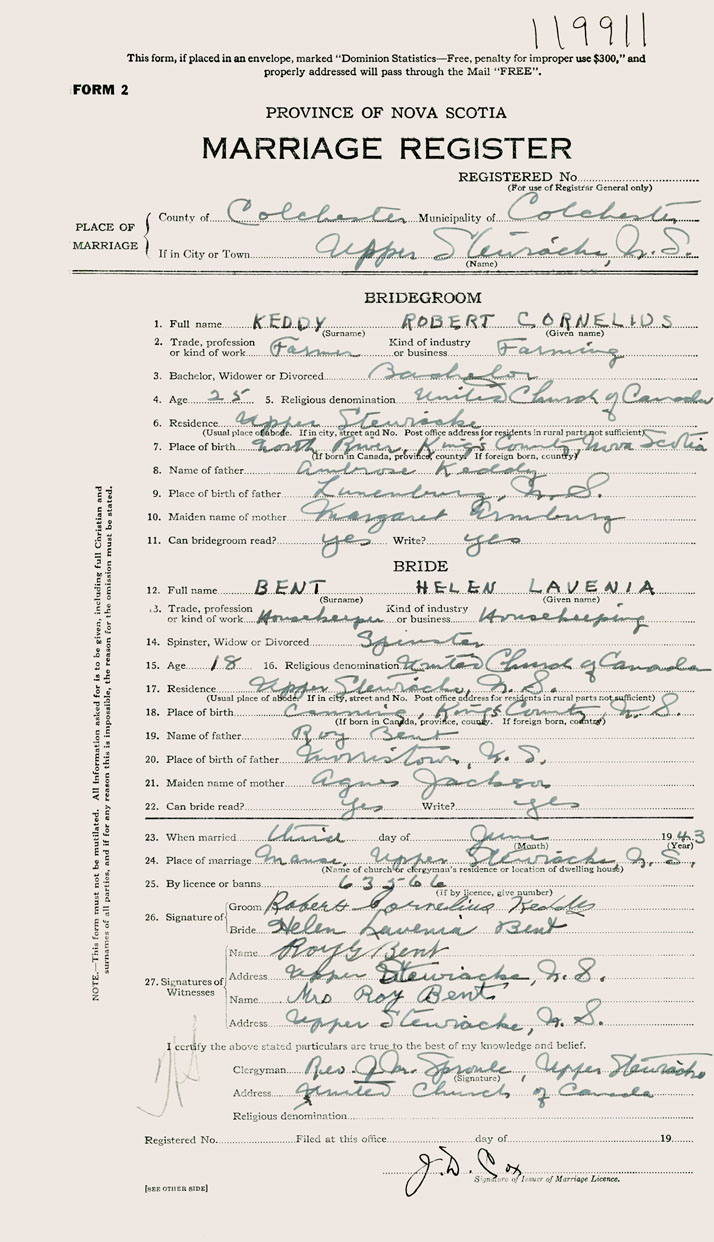 119911
This form, if placed in an envelope, marked "Dominion Statistics—Free, penalty for improper use $300," and
properly addressed will pass through the Mail "FREE".
FORM 2
PROVINCE OF NOVA SCOTIA
MARRIAGE REGISTER
REGISTERED No.
(For use of Registrar General only)
PLACE OF MARRIAGE
County of Colchester Municipality of Colchester
If in City or Town Upper Stewiacke, N. S.
(Name)
BRIDEGROOM
1. Full name KEDDY ROBERT CORNELIUS
(Surname) (Given name)
2. Trade, profession or kind of work Farmer Kind of industry or business Farming
3. Bachelor, Widower or Divorced Bachelor
4. Age 25 5. Religious denomination United Church of Canada
6. Residence Upper Stewiacke
(Usual place of abode. If in city, street and No. Post office address for residents in rural parts not sufficient)
7. Place of birth North River, King's County, Nova Scotia
(If born in Canada, province, county. If foreign born, country)
8. Name of father Ambrose Keddy
9. Place of birth of father Lunenburg, N. S.
10. Maiden name of mother Margaret
11. Can bridegroom read? yes Write? yes
BRIDE
12. Full name BENT HELEN LAVENIA
(Surname) (Given name)
13. Trade, profession or kind of work Housekeeper Kind of industry or business Housekeeping
14. Spinster, Widow or Divorced Spinster
15. Age 18 16. Religious denomination United Church of Canada
17. Residence Upper Stewiacke, N. S.
(Usual place of abode. If in city, street and No. Post office address for residents in rural parts not sufficient)
18. Place of birth Canning, King's County, N. S.
(If born in Canada, province, county. If foreign born, country)
19. Name of father Roy Bent
20. Place of birth of father Morristown, N. S.
21. Maiden name of mother Agnes Jackson
22. Can bride read? Yes Write? yes
23. When married third day of June 1943
(Month) (Year)
24. Place of marriage Manse, Upper Stewiacke, N. S.
(Name of church or clergyman's residence or location of dwelling house)
25. By licence or banns 63566
(If by licence, give number)
26. Signature of Groom Robert Cornelius Keddy
Bride Helen Lavenia Bent
27. Signatures of Witnesses
Name Roy G Bent
Address Upper Stewiacke, N. S.
Name Mrs Roy Bent
Address Upper Stewiacke, N. S.
I certify the above stated particulars are true to the best of my knowledge and belief.
Clergyman Rev. Sproule, Upper Stewiacke
(Signature)
Address United Church of Canada
Religious denomination
Registered No. Filed at this office day of 19
J. D. Cox
Signature of Issuer of Marriage Licence.
[SEE OTHER SIDE]
NOTE.—This form must not be mutilated. All Information asked for is to be given, including full Christian and
surnames of all parties, and if for any reason this is impossible, the reason for the omission must be stated.